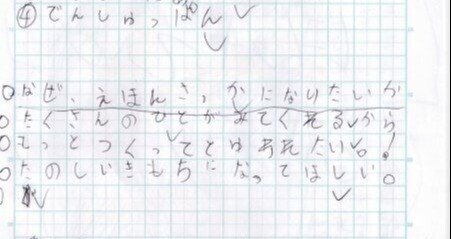 ④でんしゅっぱん
なぜ、えほんさっかになりたいか
たくさんのひとがみてくれるから
もっとつくってとゆわれたい。!
たのしいきもちになってほしい。